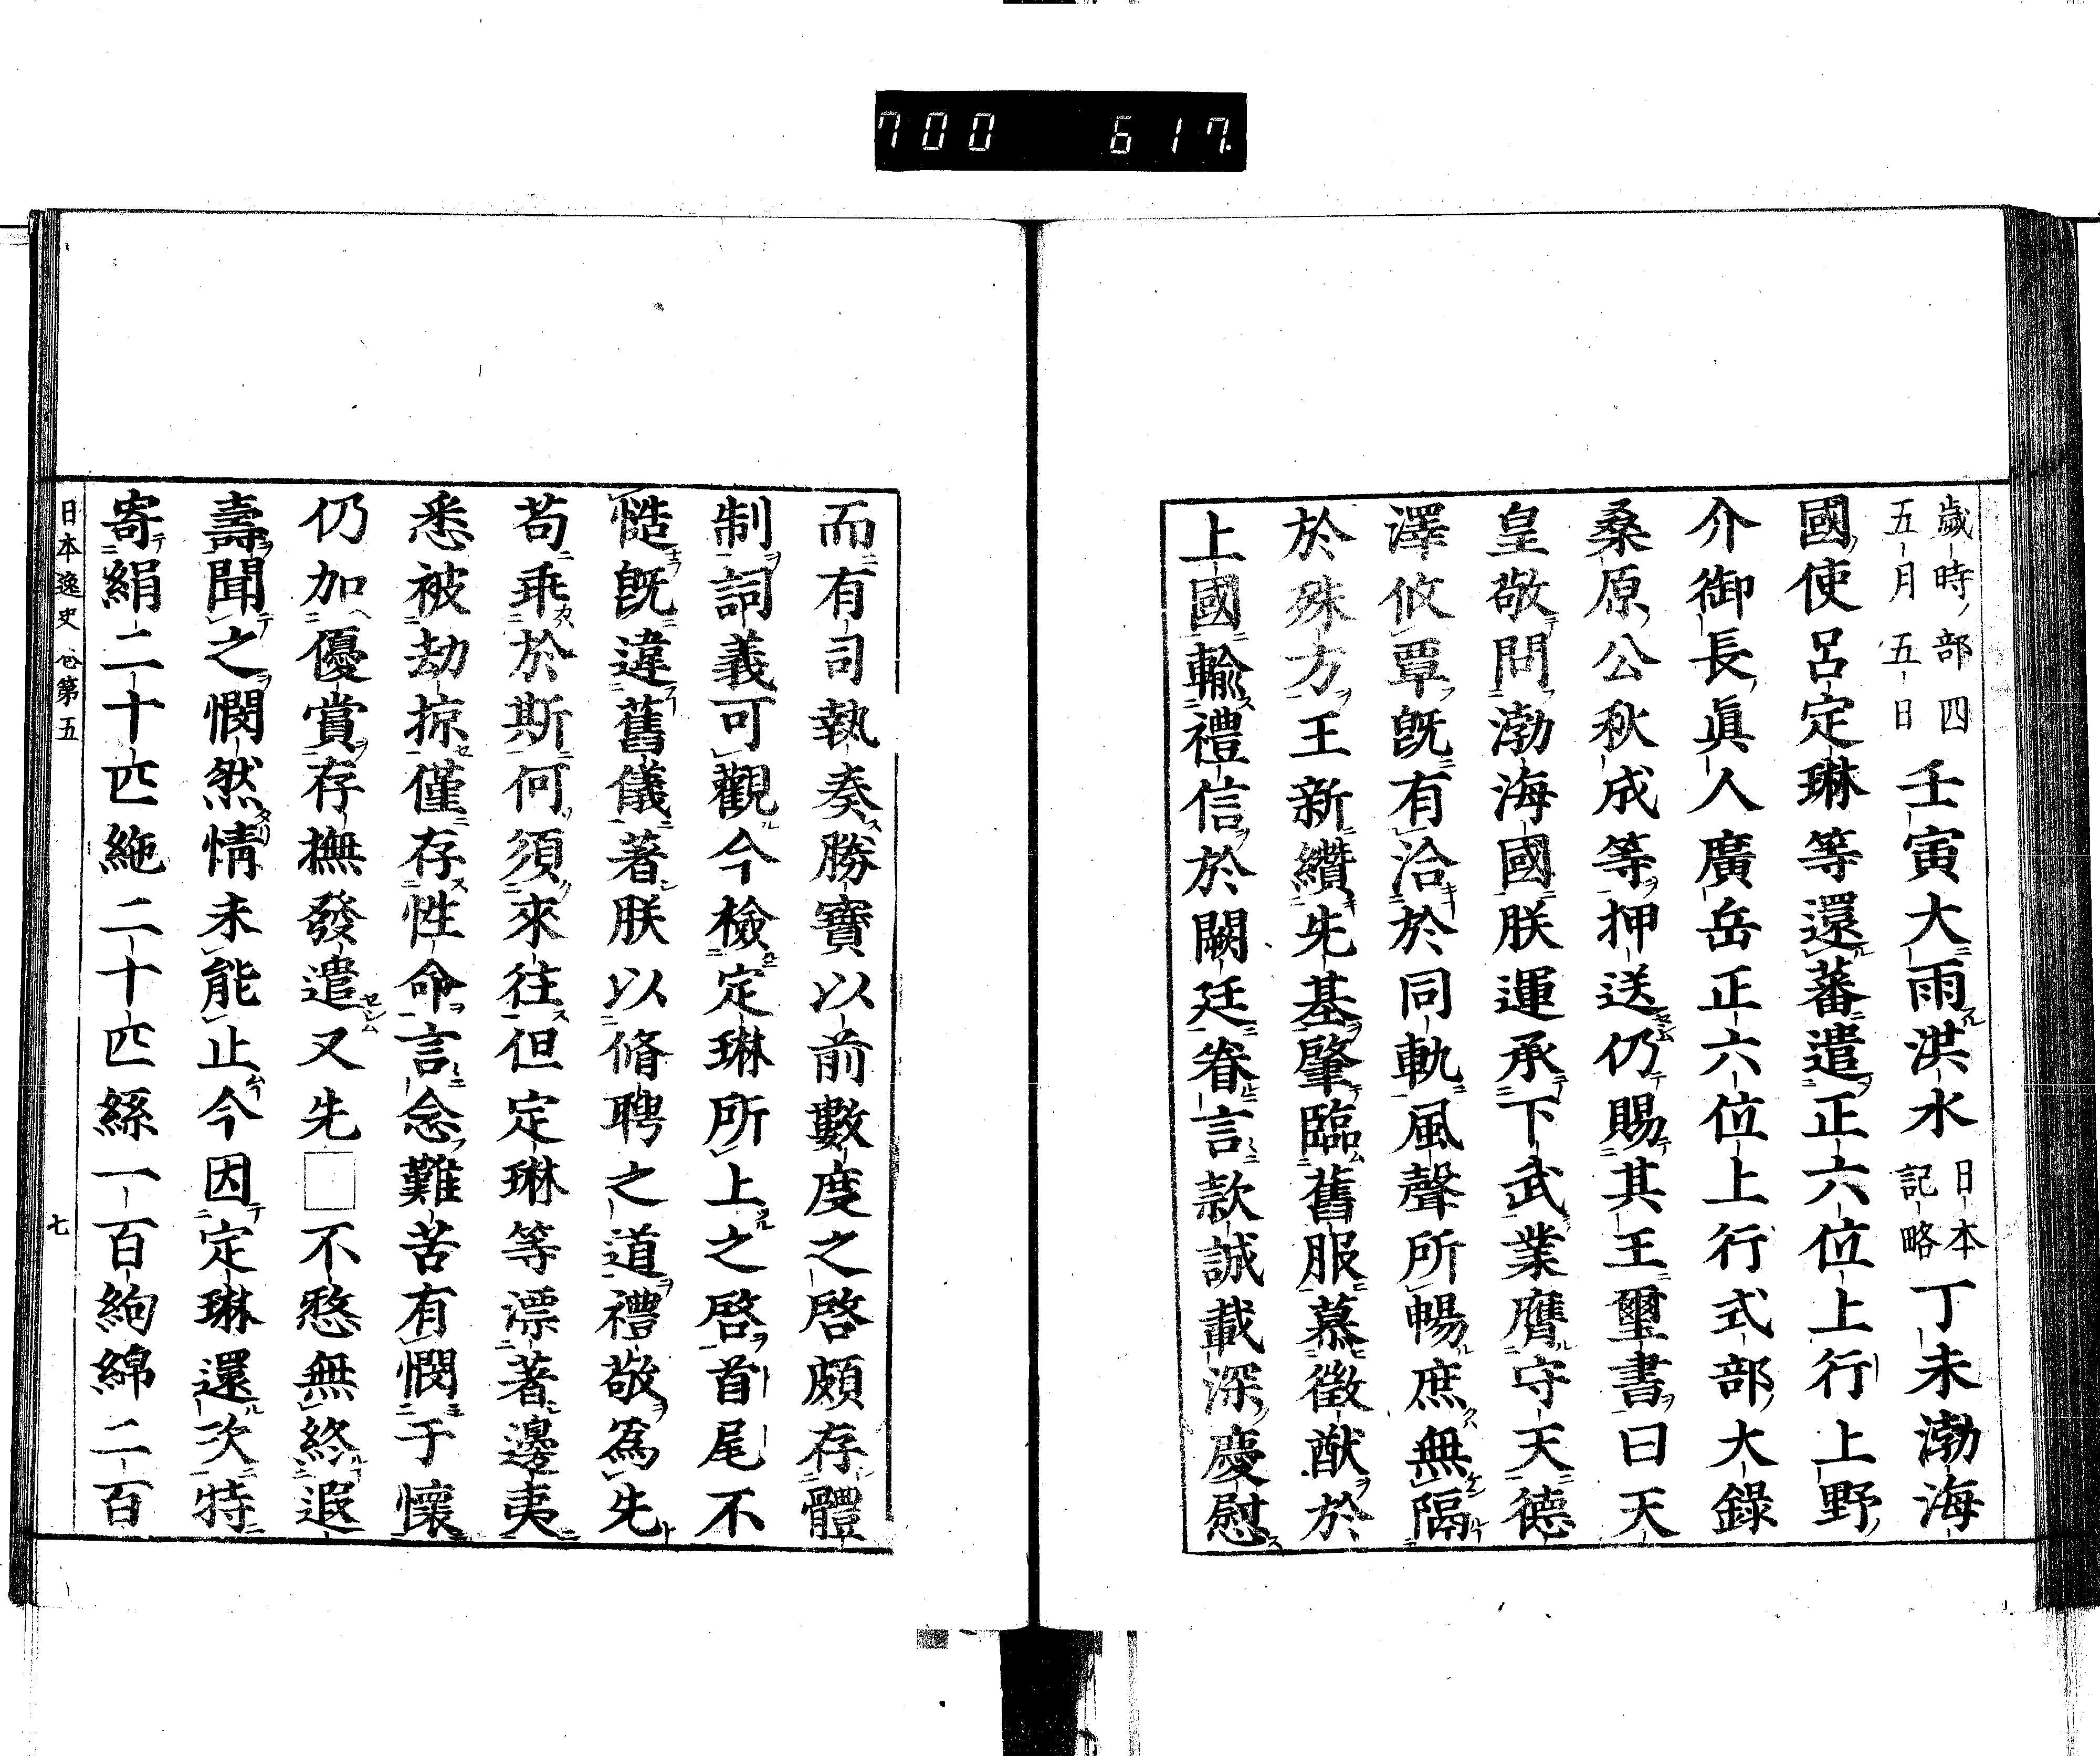 700 617
歲時部四
五月五日
壬寅大雨洪水
日本
記略
丁未渤海
國使呂定琳等還蕃遣正六位上行上野
介御長眞人廣岳正六位上行式部大錄
桑原公秋成等押送仍賜其王璽書曰天
皇敬問渤海國朕運承下武業膺守天德
澤攸覃旣有洽於同軌風聲所暢庶無隔
於殊方王新纘先基肇臨舊服慕徽猷於
上國輸禮信於闕廷眷言款誠載深慶慰
而有司執奏勝寶以前數度之啓頗存體
制詞義可觀今檢定琳所上之啓首尾不
慥旣違舊儀著朕以脩聘之道禮敬爲先
苟乖於斯何須來往但定琳等漂著邊夷
悉被劫掠僅存性命言念難苦有憫于懷
仍加優賞存撫發遣又先□不愁無終遐
壽聞之憫然情未能止今因定琳還次特
寄絹二十匹絁二十匹絲一百絇綿二百
日本逸史 卷第五 七